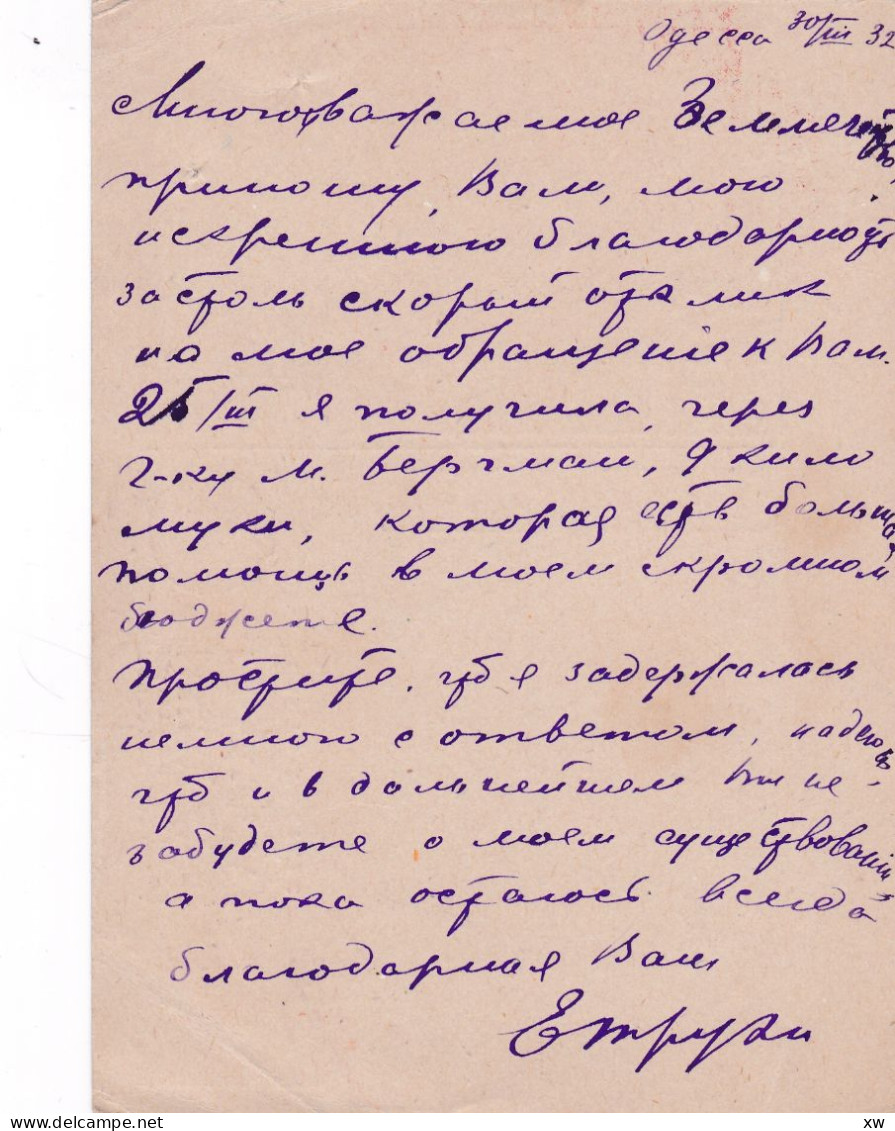 Одесса 30/III 32
Многоуважаемое Землячество,
приношу Вам, мою
искреннюю благодарность
за столь скорый отклик
на мое обращеніе к Вам.
25/III я получила, через
г-ку М. Бергман, 9 кило
муки, которая есть большая
помощь в моем скромном
бюджете.
Простите, что я задержалась
немного с ответом, надеюсь,
что и в дальнейшем Вы не
забудете о моем существованіи,
а пока остаюсь всегда
благодарная Вам
delcampe.net
xw